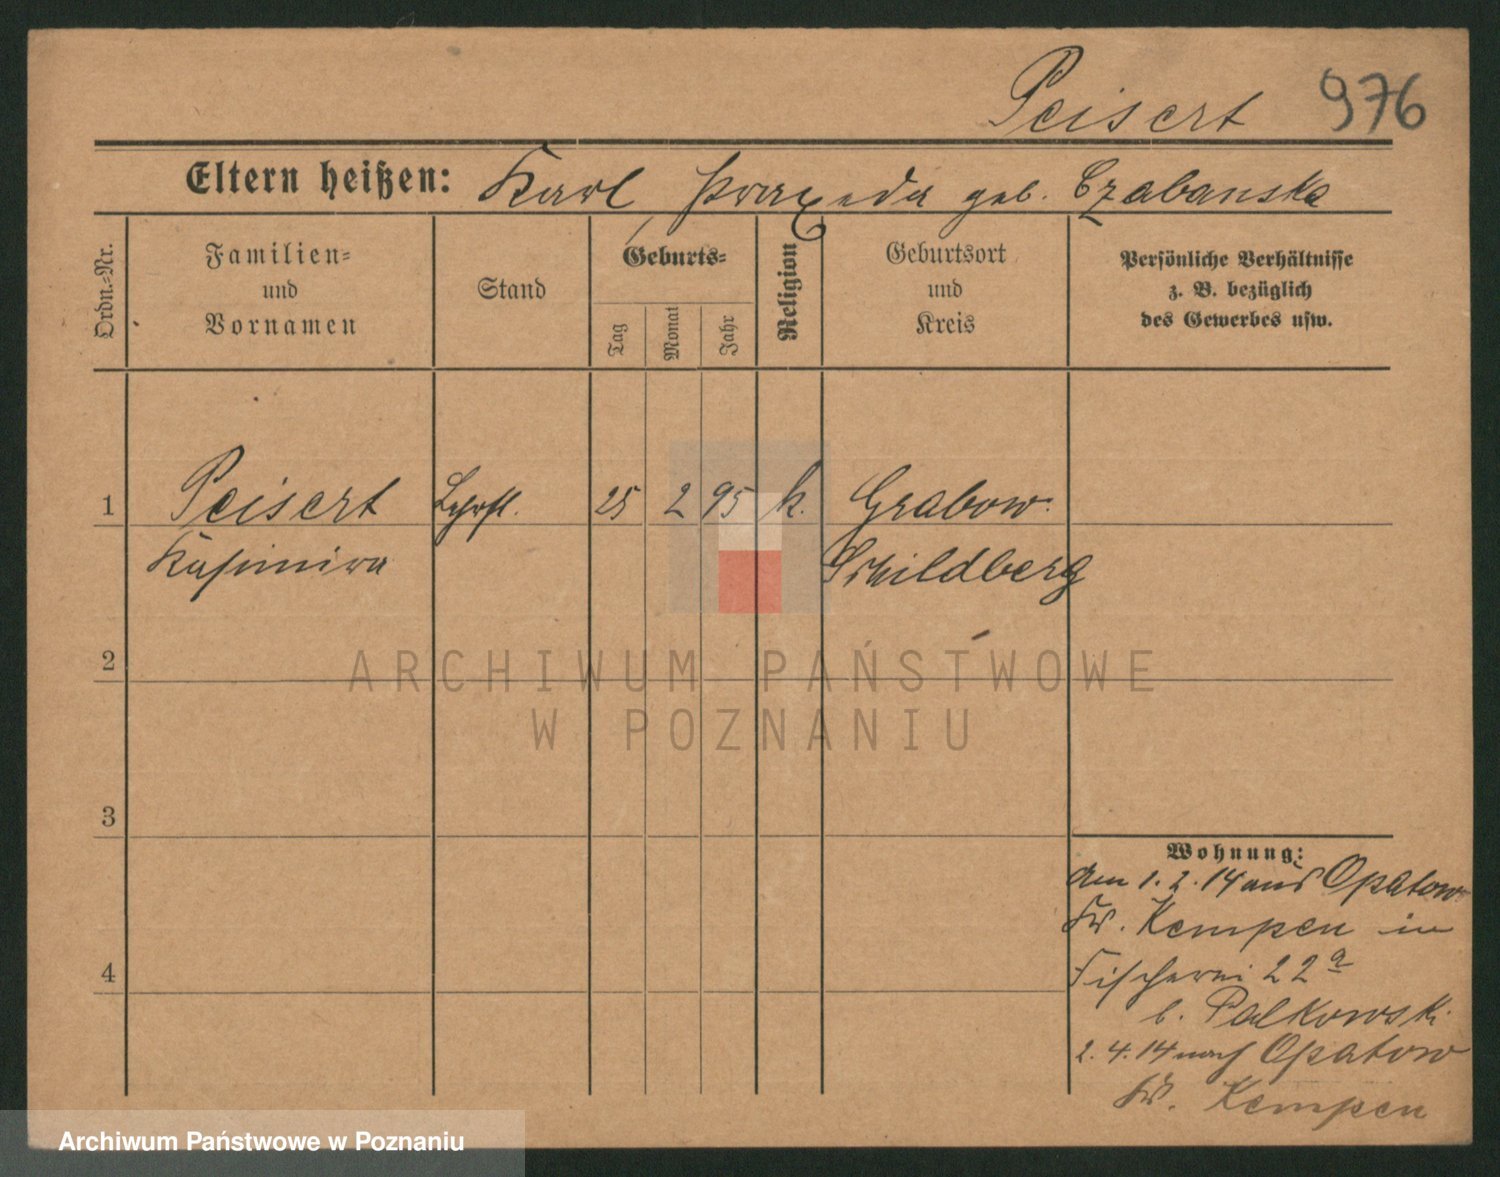 Peisert 976
Eltern heißen: Karl Praxeda geb. Czabanska
Ordn.-Nr.
Familien-
und
Vornamen
Stand
Geburts-
Tag
Monat
Jahr
Religion
Geburtsort
und
Kreis
Persönliche Verhältnisse
z. B. bezüglich
des Gewerbes usw.
1 Peisert 25 2 95 k. Grabow
Kasimira Schildberg
2
3
4
Wohnung:
Am 1.2.14 aus Opatow
Kr. Kempen in
Fischerei 22a
b. Palkowski
2.4.14 nach Opatow
Kr. Kempen
ARCHIWUM PAŃSTWOWE
W POZNANIU
Archiwum Państwowe w Poznaniu